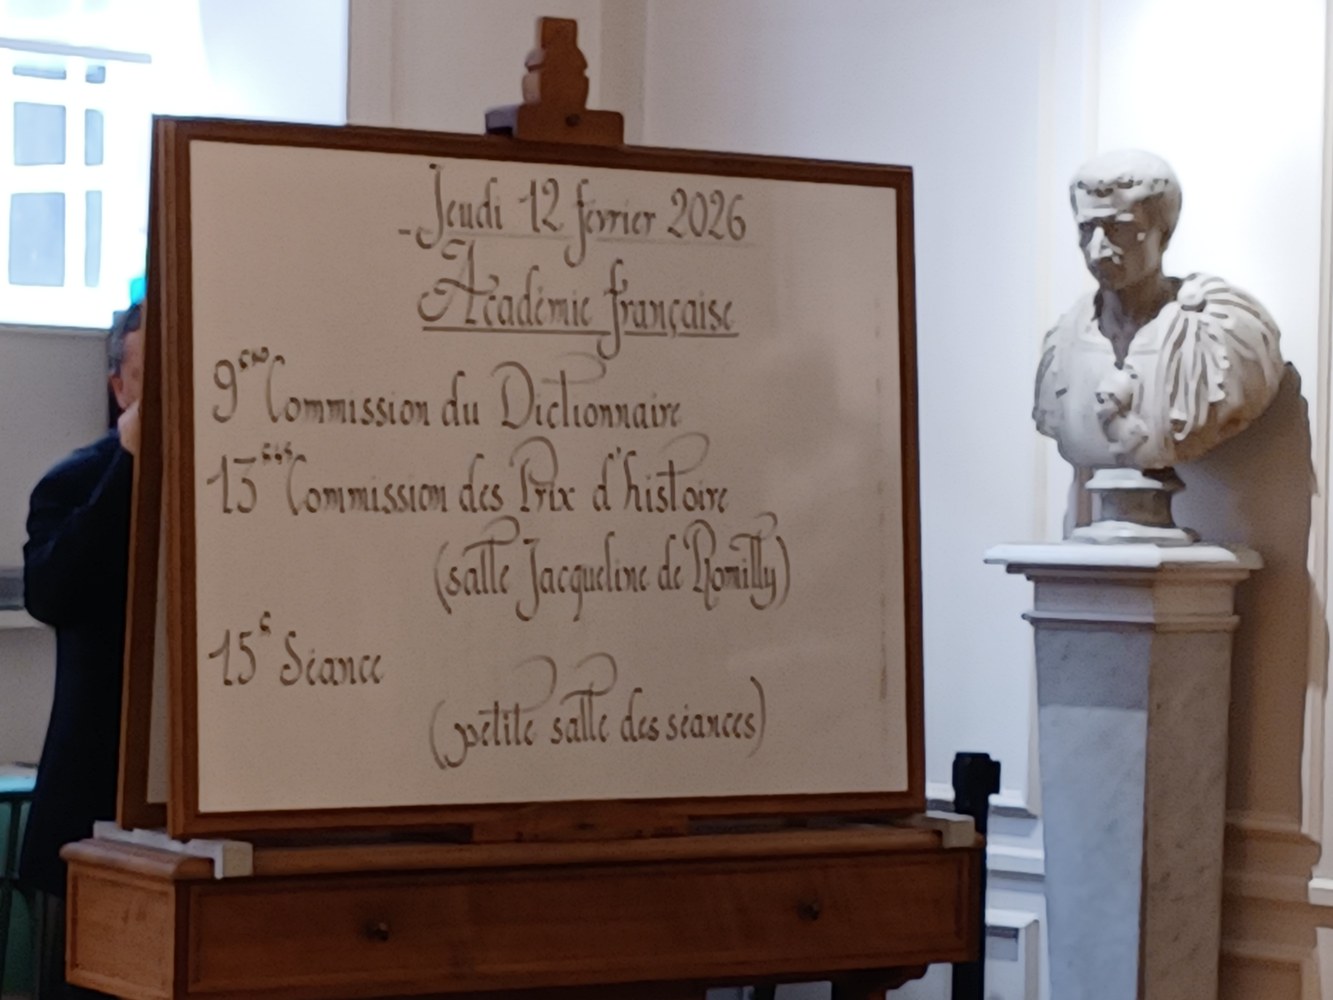 Jeudi 12 février 2026
Académie française
9h30 Commission du Dictionnaire
13h45 Commission des Prix d'histoire
(salle Jacqueline de Romilly)
15h Séance
(petite salle des séances)